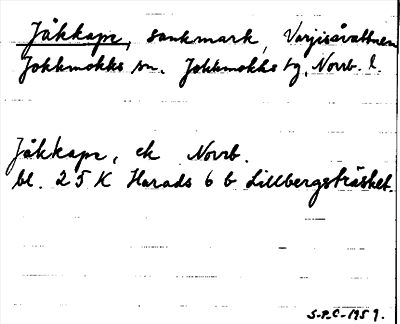 Jåkkape, sankmark, Varjisåvattnen
Jokkmokks sn. Jokkmokks tg, Norrb. l.
Jåkkape, ek Norrb.
bl. 25 K Harads 6 b Lillbergsträsket.
S-P.C-1959.